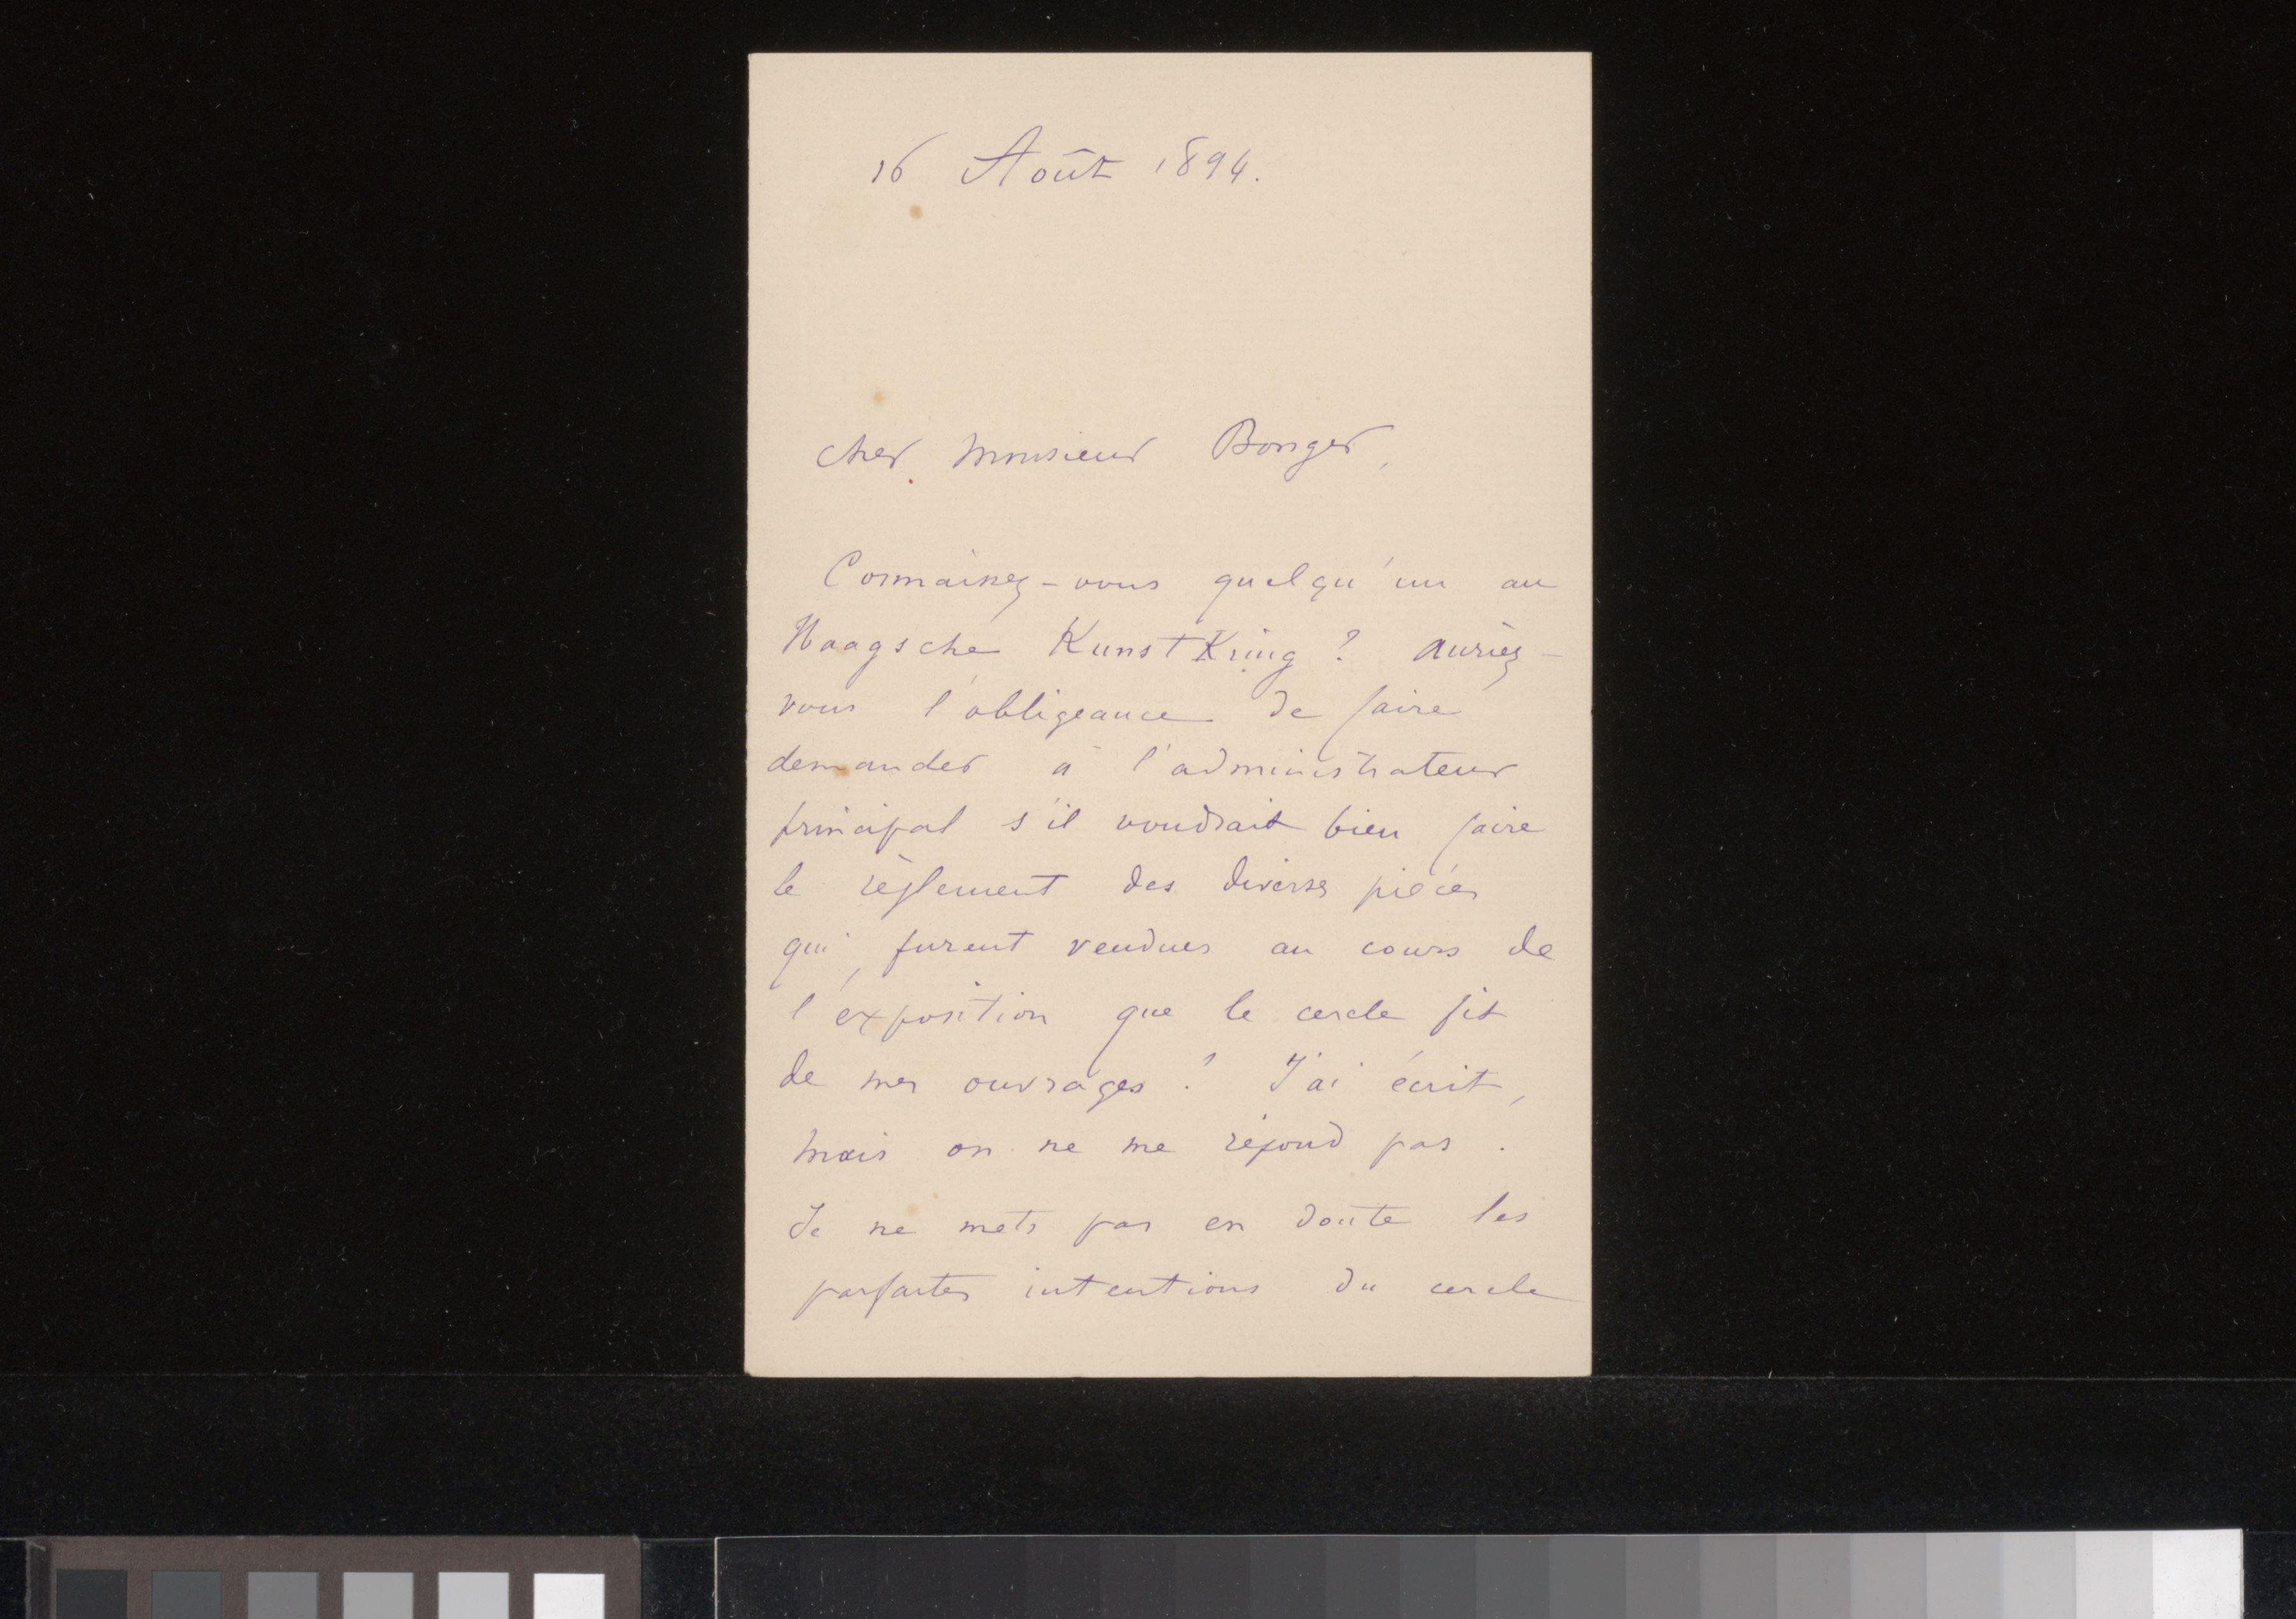 16 Août 1894.
cher Monsieur Bonger,
Connaissez-vous quelqu'un au
Haagsche KunstKring ? auriez-
vous l'obligeance de faire
demander à l'administrateur
principal s'il voudrait bien faire
le règlement des diverses pièces
qui furent vendues au cours de
l'exposition que le cercle fit
de mes ouvrages ? J'ai écrit,
mais on ne me répond pas.
Je ne mets pas en doute les
parfaites intentions du cercle